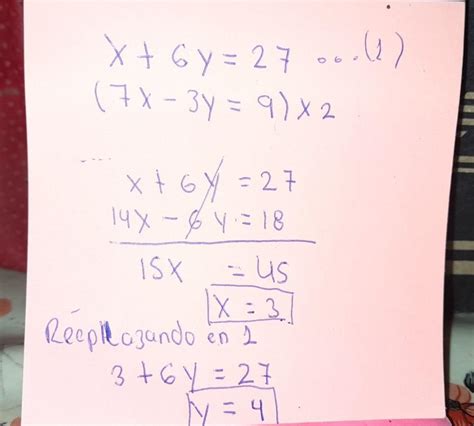 x + 6y = 27 ...(1)
(7x - 3y = 9) x 2
....
x + 6y = 27
14x - 6y = 18
15x = 45
x = 3
Réeplazando en 1
3 + 6y = 27
y = 4